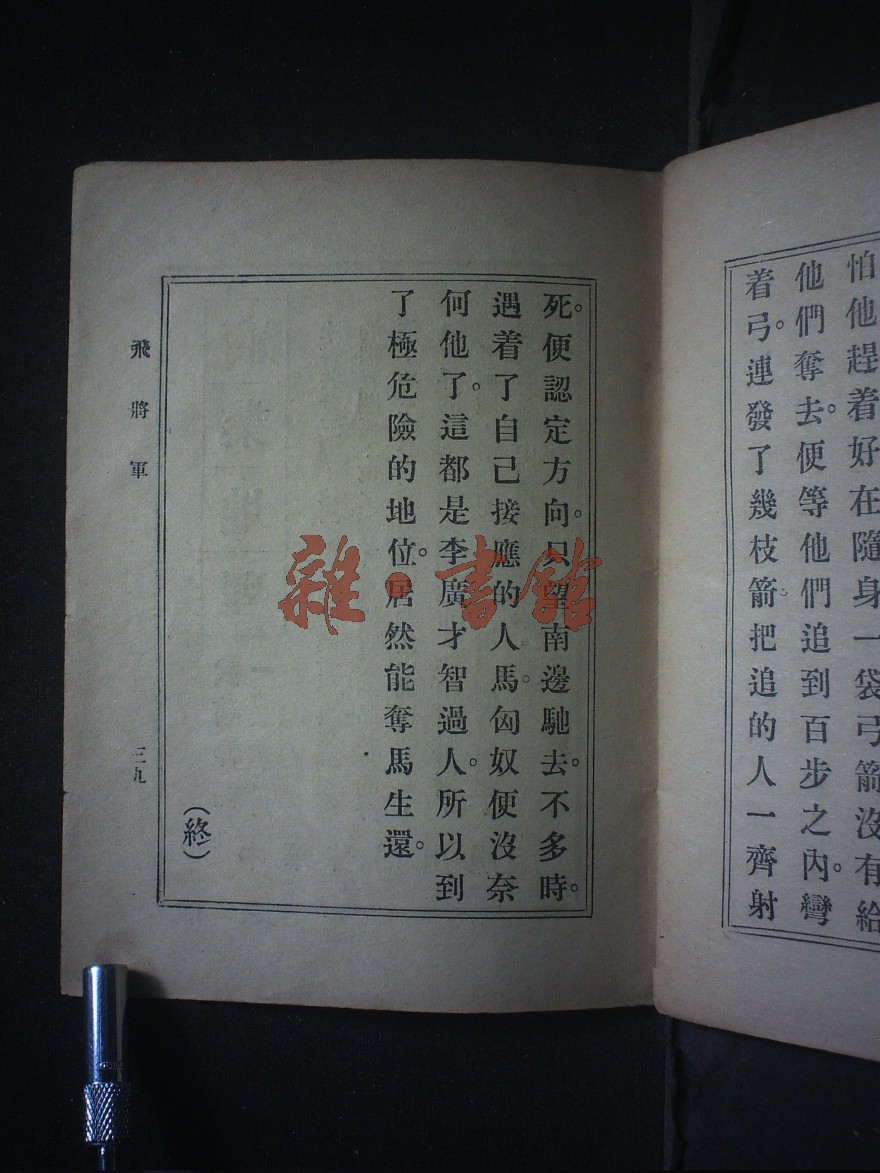 怕他趕着好在隨身一袋弓箭沒有給
他們奪去。便等他們追到百步之內。彎
着弓。連發了幾枝箭。把追的人一齊射
死。便認定方向。只望南邊馳去。不多時。
遇着了自己接應的人馬。匈奴便沒奈
何他了。這都是李廣才智過人。所以到
了極危險的地位。居然能奪馬生還。
(終)
飛將軍
三九
雜·書館